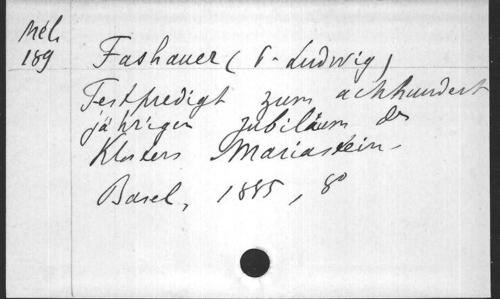 Mél.
189
Fashauer (P. Ludwig)
Festpredigt zum achhundert
jährigen Jubiläum des
Klosters Mariastein.
Basel, 1885, 8°